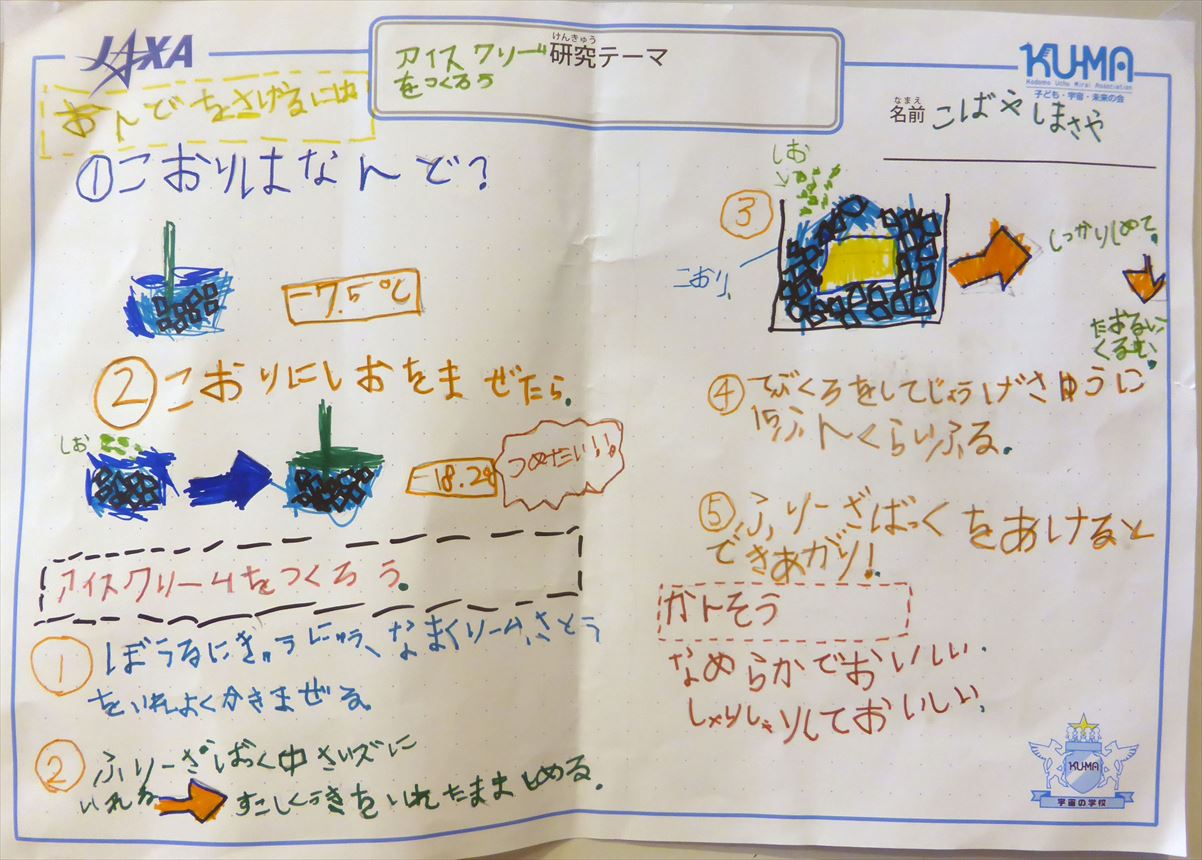 JAXA
けんきゅう
研究テーマ
アイスクリーム
をつくろう
KU-MA
Kodomo Uchu Mirai Association
子ども・宇宙・未来の会
なまえ
名前 こばやしまさや
おんどをさげるには
①こおりはなんど?
-7.5℃
②こおりにしおをまぜたら。
しお
-18.2℃
つめたい!!
アイスクリームをつくろう。
① ぼうるにぎゅうにゅう、なまくりーム、さとう
をいれよくかきまぜる。
② ふりーざばっく中さいズに
いれる
すこしくうきをいれたまましめる。
③
しお
こおり
しっかりしめて。
たおるに
くるむ。
④ てぶくろをしてじょうげさゆうに
15ふんくらいふる。
⑤ ふりーざばっくをあけると
できあがり!
かんそう
なめらかでおいしい。
しゃりしゃりしておいしい。
KU-MA
宇宙の学校